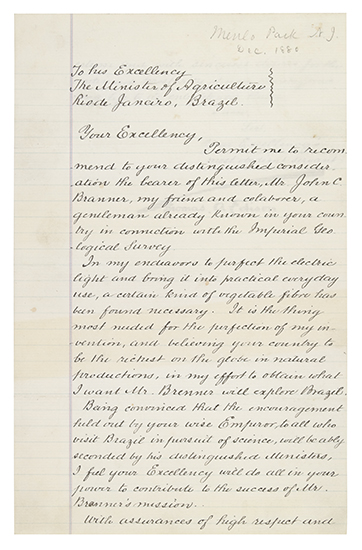 Menlo Park N.J.
Dec. 1880
To his Excellency
The Minister of Agriculture
Rio de Janeiro, Brazil.
Your Excellency,
Permit me to recom
mend to your distinguished consider
ation the bearer of this letter, Mr John C.
Branner, my friend and colaborer, a
gentleman already known in your coun
try in connection with the Imperial Geo
logical Survey
In my endeavors to perfect the electric
light and bring it into practical everyday
use, a certain kind of vegetable fibre has
been found necessary. It is the thing
most needed for the perfection of my in
vention, and believing your country to
be the richest on the globe in natural
productions, in my effort to obtain what
I want Mr. Brenner will explore Brazil.
Being convinced that the encouragement
held out by your wise Emperor, to all who
visit Brazil in pursuit of science, will be ably
seconded by his distinguished Ministers,
I feel your Excellency will do all in your
power to contribute to the success of Mr.
Branner's mission.
With assurances of high respect and